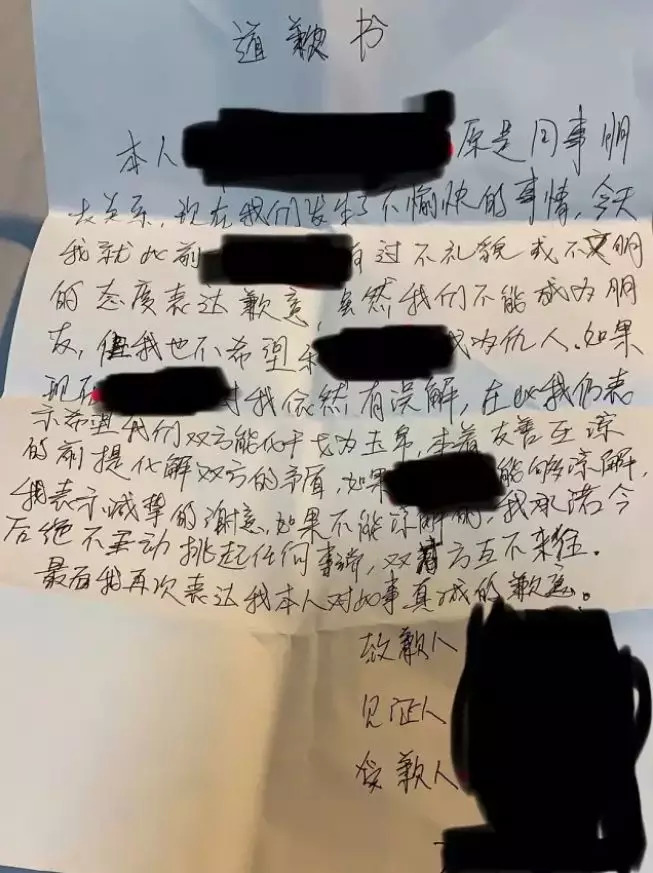 道歉书
本人 原是同事朋
友关系,现在我们发生了不愉快的事情,今天
我就此前 有过不礼貌或不文明
的态度表达歉意,虽然我们不能成为朋
友,但我也不希望和 成为仇人.如果
现在 对我依然有误解,在此我仍表
示希望我们双方能化干戈为玉帛,本着友善互谅
的前提化解双方的矛盾.如果 能够谅解,
我表示诚挚的谢意.如果不能谅解的,我承诺今
后绝不主动挑起任何事端,双方互不来往.
最后我再次表达我本人对此事真诚的歉意.
致歉人
见证人
受歉人